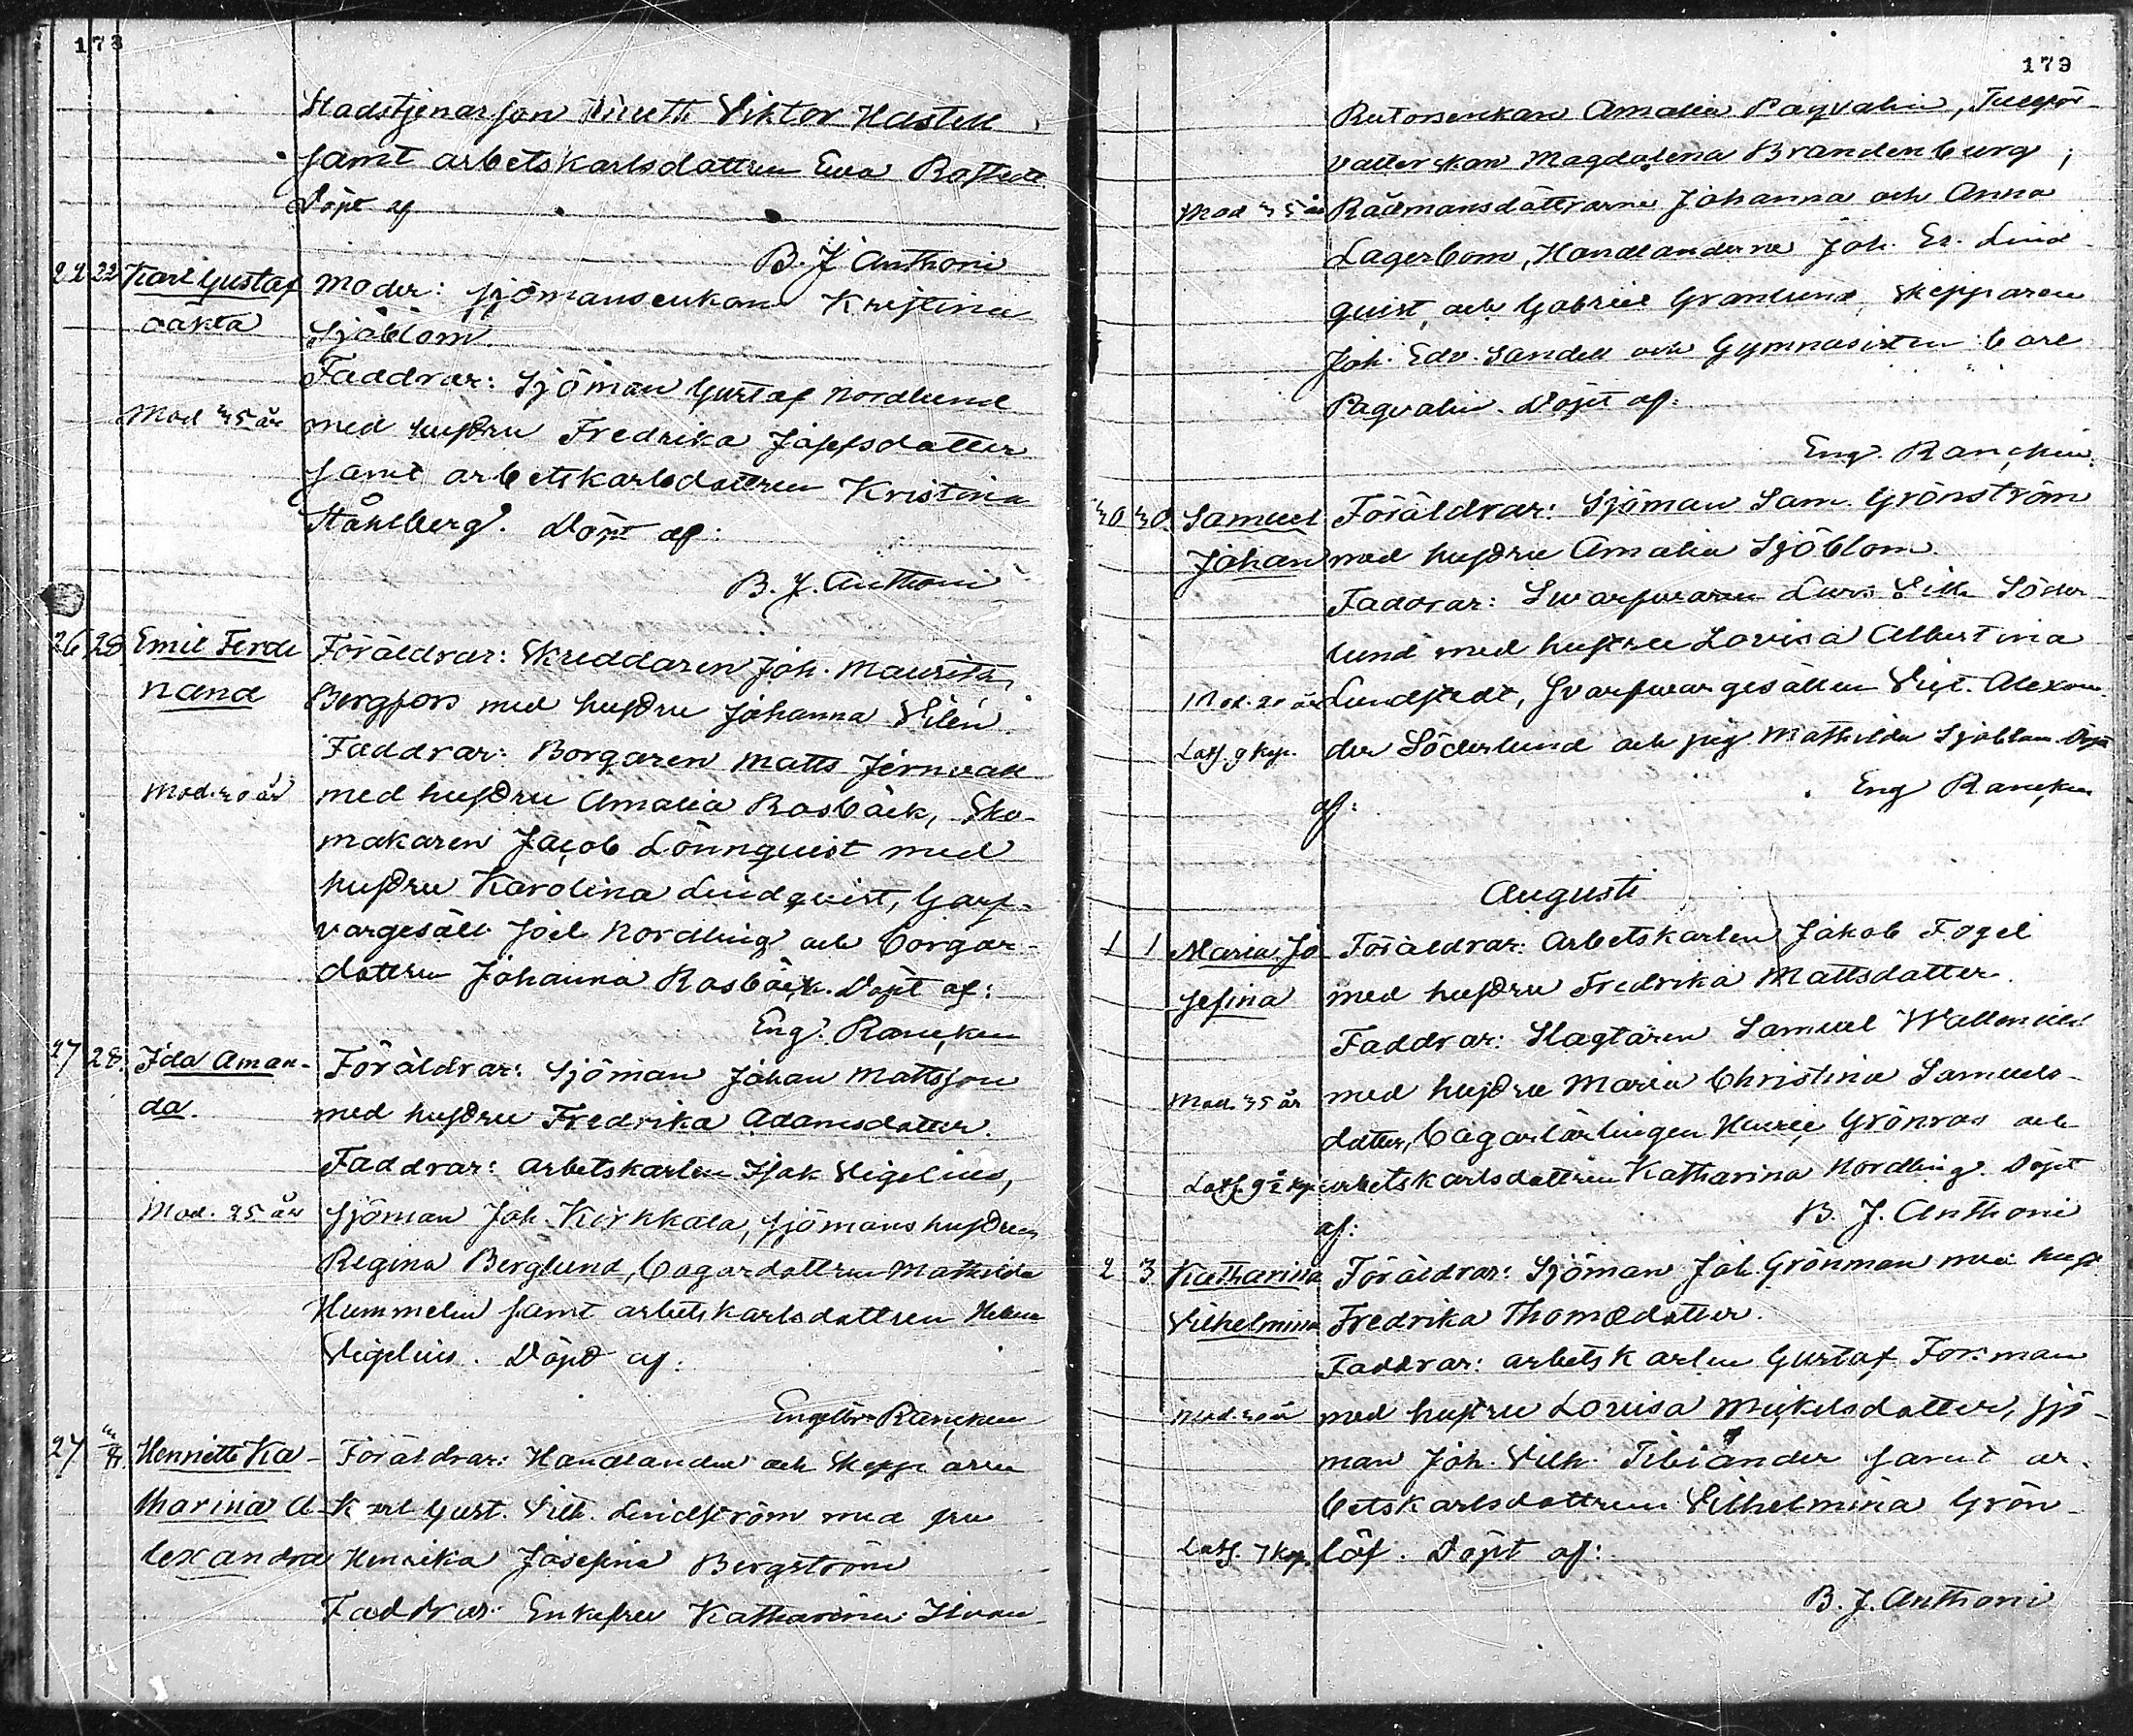 178
Stadstjenarson Viktor Hastell
samt arbetskarlsdottren Eva
Döpt af
B. J. Anthoni
22 22 Karl Gustaf Moder: Sjömansenkan Kristina
oäkta Sjöblom.
Faddrar: Sjöman Gustaf Nordlund
Mod 35 år med hustru Fredrika
samt arbetskarlsdottren Kristina
Ståhlberg. Döpt af:
B. J. Anthoni
26 28 Emil Ferdi Föräldrar: Skreddaren Joh. Maurits
nand Bergfors med hustru Johanna Vilén
Faddrar: Borgaren Matts Jernvall
Mod. 30 år med hustru Amalia Rosbäck, Sko-
makaren Jacob Lönnquist med
hustru Karolina Lindquist, Garf-
vargesäll Joel Nordling och borgar-
dottren Johanna Rosbäck. Döpt af:
Eng. Rancken
27 28. Ida Aman- Föräldrar: Sjöman Johan Mattsson
da. med hustru Fredrika Adamsdotter.
Faddrar: arbetskarlen Isak Vigelius,
Mod. 25 år Sjöman Joh. Kirkkala, sjömanshustrun
Regina Berglund, bagardottren Mathilda
Hummelin samt arbetskarlsdottren Helena
Vigelius. Döpt af:
Engelbr. Rancken
27 Henriette Ka- Föräldrar: Handlanden och Skepparen
tharina A- Karl Gust. Vilh. Lindström med fru
lexandra Henrika Josefina Bergström
Faddrar: Enkefru Katharina
179
Amalia Pagvalin, Tullför-
valterskan Magdalena Brandenburg;
Mod 35 år Rådmansdöttrarne Johanna och Anna
Lagerbom, Handlanderne Joh. Er. Lind
quist och Gabriel Granlund, Skepparen
Joh. Edv. Sandell och Gymnasisten Carl
Pagvalin. Döpt af:
Eng. Rancken.
30 30. Samuel Föräldrar: Sjöman Sam. Grönström
Johan med hustru Amalia Sjöblom.
Faddrar: Svarfvaren Lars Vilh. Söder
lund med hustru Lovisa Albertina
Mod. 20 år Lundstedt, Svarfvargesällen Vikt. Alexan
Latf. 9 kop. der Söderlund och pig. Mathilda Sjöblom. Döpt
af: Eng Rancken
Augusti
1 1 Maria Jo- Föräldrar: Arbetskarlen Jakob Fogel
sefina med hustru Fredrika Mattsdotter.
Faddrar: Slagtaren Samuel
Mod. 35 år med hustru Maria Christina Samuels-
dotter, bagarlärlingen Henric Grönroos och
Latf. 9½ kop. arbetskarlsdottren Katharina Nordling. Döpt
af: B. J. Anthoni
2 3 Katharina Föräldrar: Sjöman Joh. Grönman med hust
Vilhelmina Fredrika Thomædotter.
Faddrar: arbetskarlen Gustaf Forsman
Mod. 30 år med hustru Lovisa Mickelsdotter, sjö-
man Joh. Vilh. Tibiander samt ar-
betskarlsdottren Vilhelmina Grön-
Latf. 7 kop. löf. Döpt af:
B. J. Anthoni